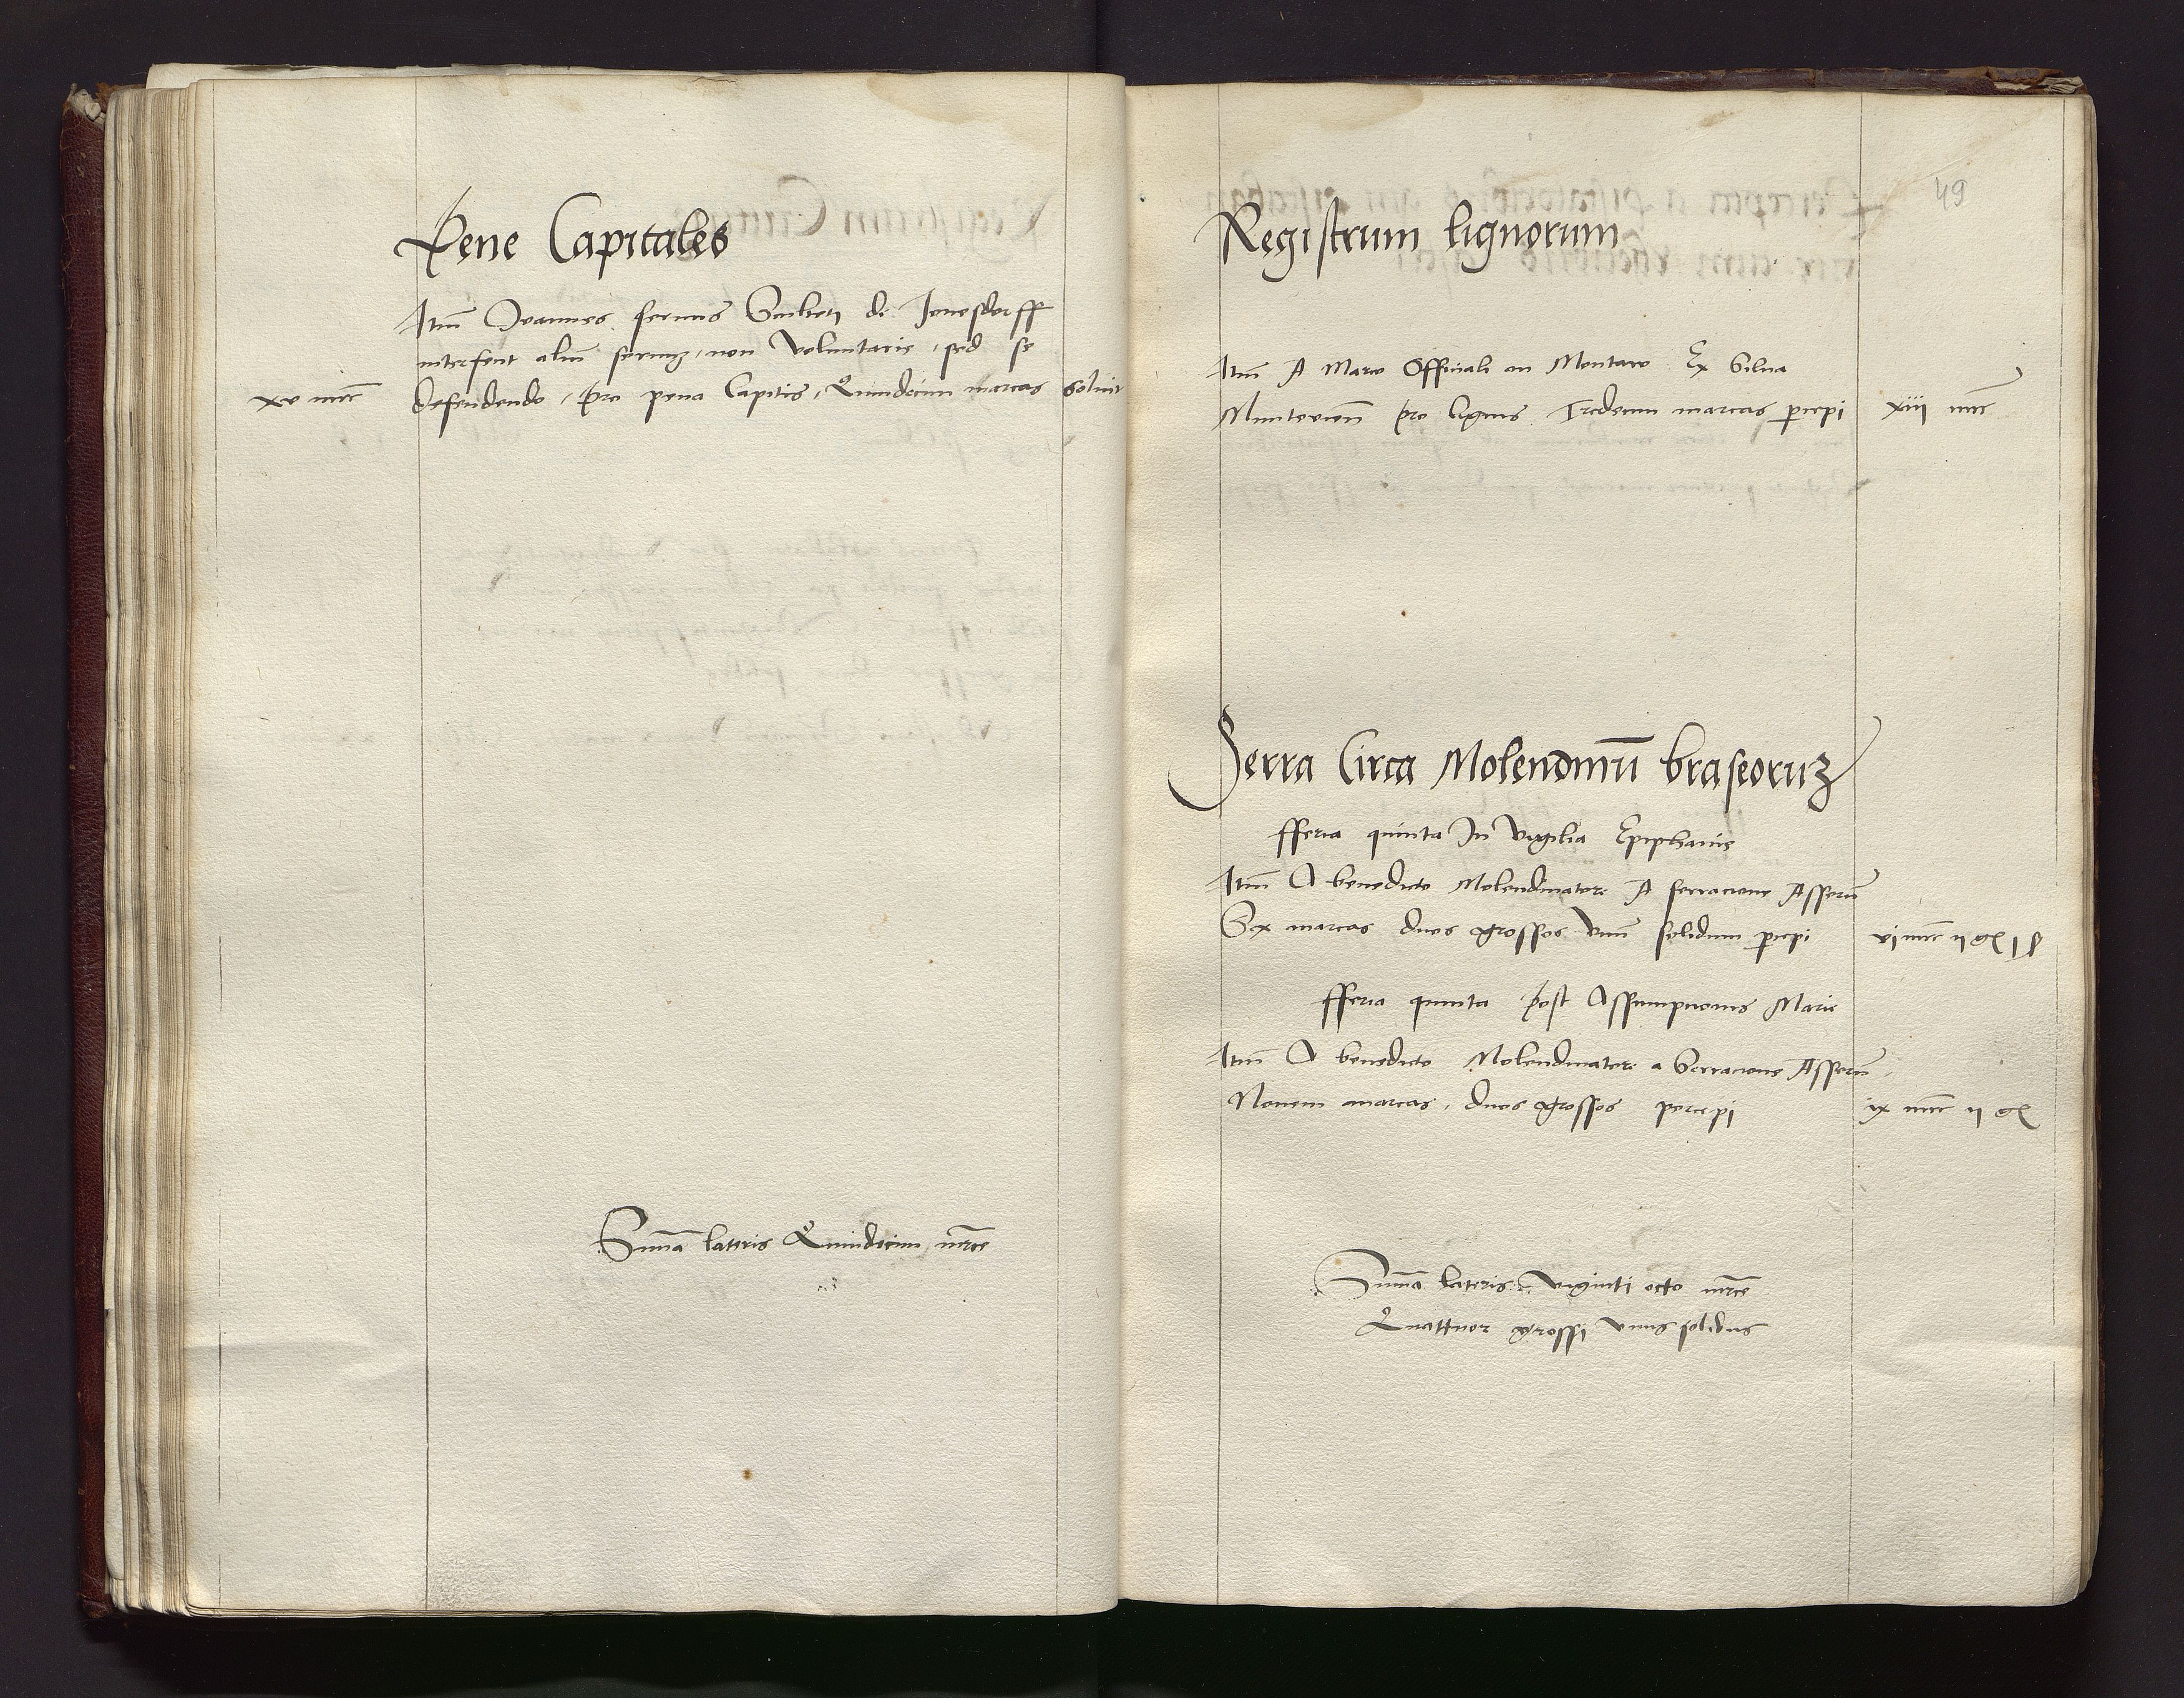 Pene Capitales
Itm̄ Joannes seruus Sculteti de Jonesdorff
interfecit aliū seruuȝ, non voluntarie, sed se
xv mrc̄ defendendo, pro pena Capitis, Quindecim marcas soluit
Sum̄a lateris Quindecim mrce
49
Registrum lignorum
Itm̄ A Marco Officiali in Montare Ex Silua
pro lignis Tredecim marcas p̱cepi xiii mrc̄
Serra Circa Molendinū braseoruȝ
fferia quinta In Vigilia Epiphanie
Itm̄ A benedicto Molendinatore A serracione Asserū
Sex marcas duos grossos vnū solidum p̱cepi vi mrc̄ ii gr i ſ
fferia quinta post Assumpcionis Marie
Itm̄ A benedicto Molendinatore a Serracione Asserū
Nouem marcas, duos grossos percepi ix mrc̄ ii gr
Sum̄a lateris viginti octo mrce
Quattuor grossi vnus solidus